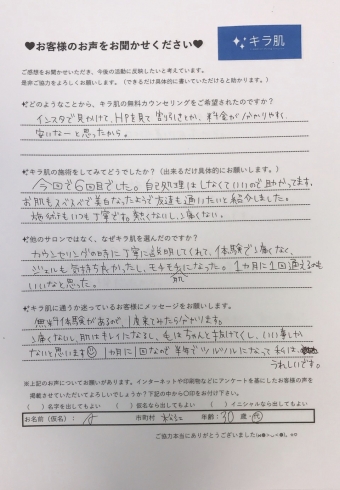 ♥お客様のお声をお聞かせください♥
キラ肌
ご感想をお聞かせいただき、今後の活動に反映したいと考えています。
是非ご協力をよろしくお願いします。（できるだけ具体的に書いていただけると助かります。）
*どのようなことから、キラ肌の無料カウンセリングをご希望されたのですか？
インスタで見かけて、HPを見て割引きとか、料金が分かりやすく、
安いなーと思ったから。
*キラ肌の施術をしてみてどうでしたか？（出来るだけ具体的にお願いします。）
今回で6回目でした。自己処理はしなくていいので助かってます。
お肌もスベスベで美白なったようで友達も通いたいと紹介しました。
施術もいつも丁寧です。熱くないし、痛くない。
*他のサロンではなく、なぜキラ肌を選んだのですか？
カウンセリングの時に丁寧に説明してくれて、体験で痛くなく、
ジェルも気持ちよかったし、モチモチ肌になった。1カ月に1回通えるのも
いいなと思った。
*キラ肌に通うか迷っているお客様にメッセージをお願いします。
無料体験があるので、1度来てみたら分かります。
痛くないし、肌はキレイになるし、毛はちゃんと抜けてくし、いい事しか
ないと思います 1カ月に1回なので半年でツルツルになって私は、
うれしいです。
*上記のお声についてお願いがあります。インターネットや印刷物などにアンケートを基にしたお客様の声を
掲載させていただいてよろしいでしょうか？下記の中から〇印をお付け下さい。
（　）名字を出してもよい　（　）仮名なら出してもよい　（　）イニシャルなら出してもよい
お名前（仮名）：　市町村　年齢：30 歳・
ご協力本当にありがとうございました